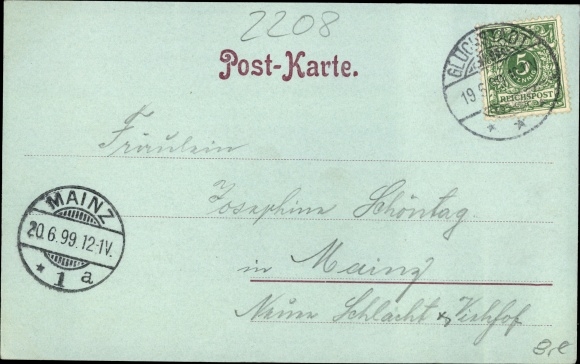 2208
Post-Karte.
GLÜCKSTADT
19.6.
5
PFENNIG
REICHSPOST
Fräulein
Josephine Schöntag.
MAINZ
20.6.99.12-1V.
* 1 a
in Mainz
Neuer Schlacht & Viehhof